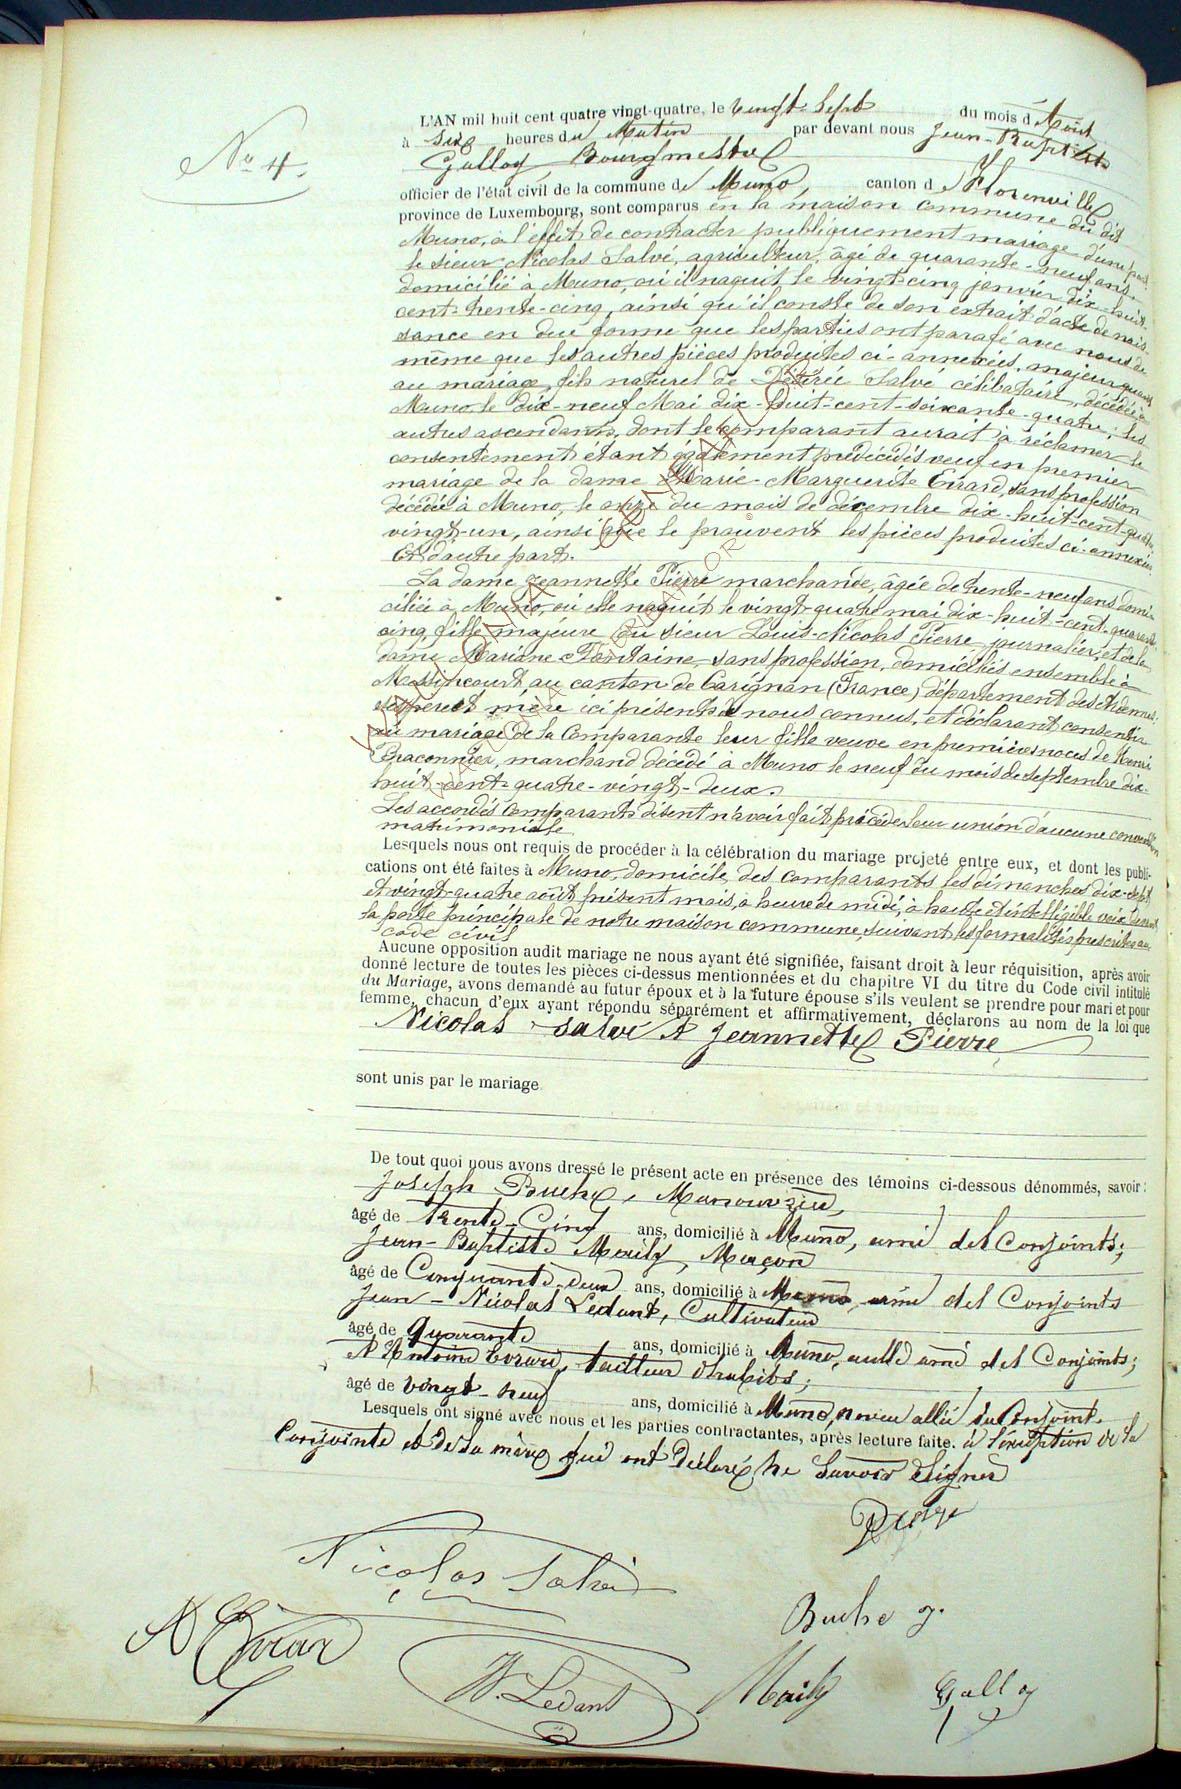 No 4.
L'AN mil huit cent quatre vingt-quatre, le vingt-sept du mois d'Août
à six heures du Matin par devant nous Jean-Baptiste
Galloy, Bourgmestre
officier de l'état civil de la commune de Muno, canton de Florenville
province de Luxembourg, sont comparus en la maison commune du dit
Muno, à l'effet de contracter publiquement mariage d'une part
le sieur Nicolas Salvé, agriculteur, âgé de quarante-neuf ans
domicilié à Muno, où il naquit le vingt-cinq janvier dix-huit-
cent-trente-cinq, ainsi qu'il conste de son extrait d'acte de nais-
sance en due forme que les parties ont parafé avec nous de
même que les autres pièces produites ci-annexées, majeur quant
au mariage, fils naturel de Désirée Salvé célibataire, décédée à
Muno le dix-neuf Mai dix-huit-cent-soixante-quatre; les
autres ascendants, dont le comparant aurait à réclamer le
consentement étant également prédécédés veuf en premier
mariage de la dame Marie-Marguerite Evrard, sans profession
décédée à Muno, le onze du mois de décembre dix-huit-cent-quatre
vingt-un, ainsi que le prouvent les pièces produites ci-annexées.
Et d'autre part.
La dame Jeannette Pierre marchande, âgée de trente-neuf ans domi-
ciliée à Muno, où elle naquit le vingt-quatre mai dix-huit-cent-quarante
cinq, fille majeure du sieur Louis-Nicolas Pierre, journalier, et de la
dame Mariane Fontaine, sans profession, domiciliés ensemble à
Messincourt, au canton de Carignan (France) département des Ardennes;
ses père et mère ici présents de nous connus, et déclarant consentir
au mariage de la Comparante leur fille veuve en premières noces de Henri
Braconnier, marchand décédé à Muno le neuf du mois de septembre dix-
huit-cent-quatre-vingt-deux.
Les accordés comparants disent n'avoir fait précéder leur union d'aucune convention
matrimoniale
Lesquels nous ont requis de procéder à la célébration du mariage projeté entre eux, et dont les publi-
cations ont été faites à Muno, domicile des comparants les dimanches dix-sept
et vingt-quatre août présent mois, à heure de midi, à haute et intelligible voix devant
la porte principale de notre maison commune, suivant les formalités prescrites au
code civil
Aucune opposition audit mariage ne nous ayant été signifiée, faisant droit à leur réquisition, après avoir
donné lecture de toutes les pièces ci-dessus mentionnées et du chapitre VI du titre du Code civil intitulé
du Mariage, avons demandé au futur époux et à la future épouse s'ils veulent se prendre pour mari et pour
femme, chacun d'eux ayant répondu séparément et affirmativement, déclarons au nom de la loi que
Nicolas Salvé et Jeannette Pierre
sont unis par le mariage
De tout quoi nous avons dressé le présent acte en présence des témoins ci-dessous dénommés, savoir:
Joseph Buche, Manouvrier,
âgé de Trente-Cinq ans, domicilié à Muno, ami des Conjoints;
Jean-Baptiste Mailly, Maçon
âgé de Cinquante-deux ans, domicilié à Muno ami des Conjoints
Jean-Nicolas Ledant, Cultivateur
âgé de quarante ans, domicilié à Muno, aussi ami des Conjoints;
Et Antoine Evrard, tailleur d'habits;
âgé de vingt-neuf ans, domicilié à Muno, neveu allié du Conjoint.
Lesquels ont signé avec nous et les parties contractantes, après lecture faite. à l'éxception de la
Conjointe et de sa mère qui ont Déclaré ne Savoir Signer
Nicolas Salvé
Buche J.
A Evrar
N. Ledant
Mailly
Galloy